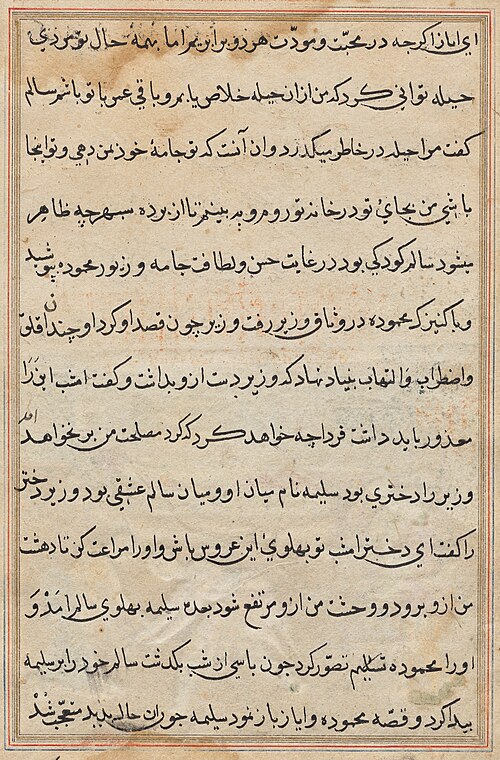 ای ایاز اگرچه در محبّت و مودّت هر دو برابریم اما بهمهٔ حال تو مردی
حیله توانی کرد که من ازان حیله خلاص یابم و باقی عمر با تو باشم سالم
کفت مرا حیله در خاطر میکذرد و ان آنست که تو جامهٔ خود بمن دهی و تو اینجا
باشی من بجای تو در خانه تو روم و به بینم تا از پرده سپهر چه ظاهر
میشود سالم کودکی بود در غایت حسن و لطافت جامه و زیور محموده بپوشید
و با کنیزک محموده در وثاق وزیر رفت وزیر چون قصد او کرد او چندان قلق
و اضطراب و التهاب بنیاد نهاد که وزیر دست ازو بداشت و کفت امشب این را
معذور باید داشت فردا چه خواهد کرد که کرد مصلحت من بر نخواهد امد
وزیر را دختری بود سلیمه نام میان او و میان سالم عشقی بود وزیر دختر
را کفت ای دختر امشب تو بهلوی این عروس باش و او را مراعت کن تا دهشت
من ازو برود و وحشت من ازو مرتفع شود بعده سلیمه بهلوی سالم امد و
او را محموده تصوّر کرد چون پاسی از شب بکذشت سالم خود را بر سلیمه
پیدا کرد و قصّه محموده و ایاز باز نمود سلیمه چون ان حال بدید متعجّب شد